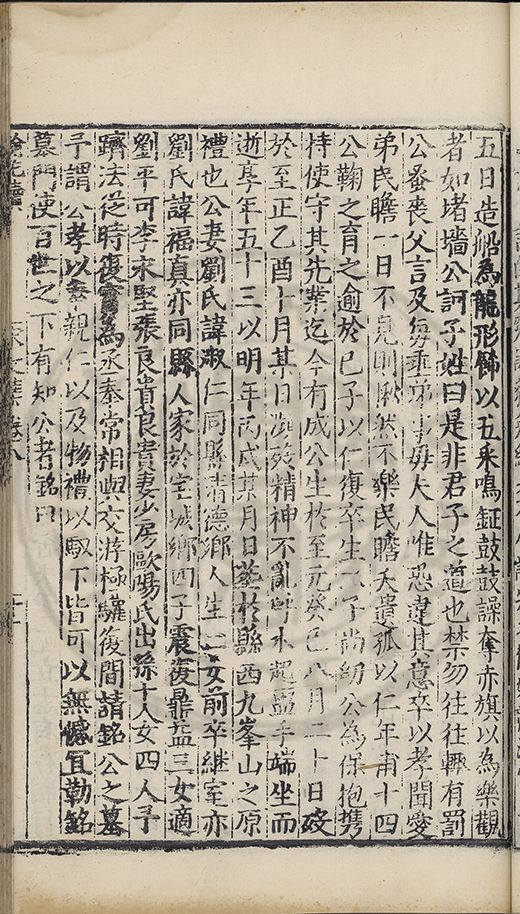 五日造船為龍形飾以五采鳴鉦鼓鼓譟奪赤旗以為樂觀
者如堵牆公訶子姓曰是非君子之道也禁勿往往輒有罰
公蚤喪父言及每垂涕事母夫人唯恐違其意卒以孝聞愛
弟民瞻一日不見則愀然不樂民瞻夭遺孤以仁年甫十四
公鞠之育之逾於己子以仁復卒生二子尚幼公為保抱攜
持使守其先業迄今有成公生於至元癸巳八月二十日歿
於至正乙酉十月某日瀕歿精神不亂呼水起盥手端坐而
逝享年五十三以明年丙戌某月日葬於縣西九峯山之原
禮也公妻劉氏諱淑仁同縣清德鄉人生二女前卒繼室亦
劉氏諱福真亦同縣人家於宣城鄉四子震復鼎益三女適
劉平可李宋堅張良貴良貴妻少房歐陽氏出孫十人女四人予
躋法從時復實為丞奉常相與交游極驩復間請銘公之墓
予謂公孝以養親仁以及物禮以馭下皆可以無憾宜勒銘
墓門使百世之下有知公者銘曰